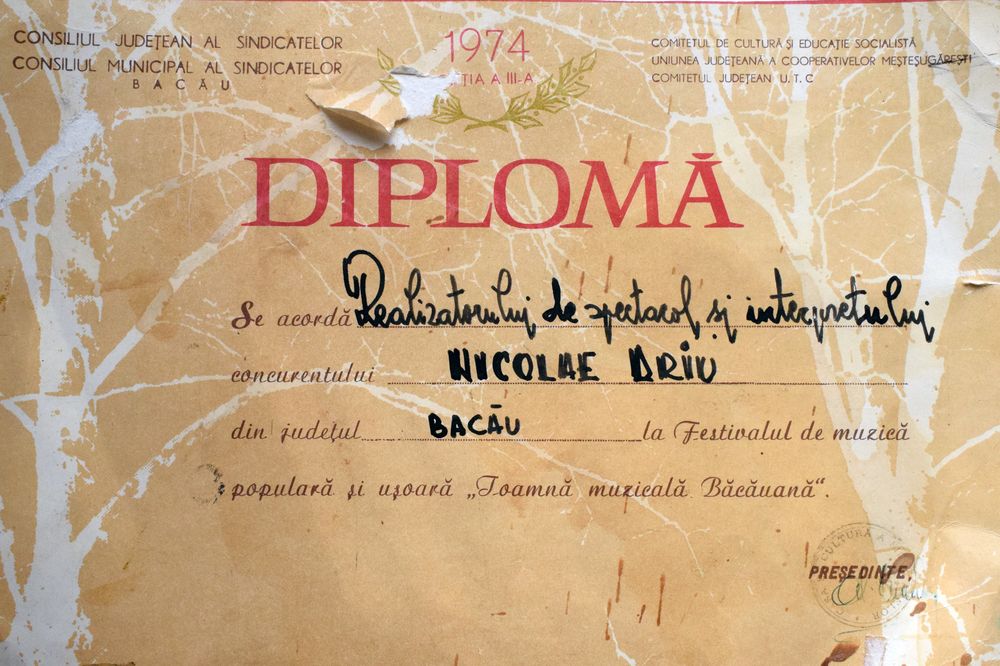 CONSILIUL JUDEȚEAN AL SINDICATELOR
CONSILIUL MUNICIPAL AL SINDICATELOR
BACĂU
1974
ȚIA A III-A
COMITETUL DE CULTURĂ ȘI EDUCAȚIE SOCIALISTĂ
UNIUNEA JUDEȚEANĂ A COOPERATIVELOR MEȘTEȘUGĂREȘTI
COMITETUL JUDEȚEAN U.T.C
DIPLOMĂ
Se acordă Realizatorului de spectacol și interpretului
concurentului NICOLAE
din județul BACĂU la Festivalul de muzică
populară și ușoară „Toamnă muzicală Băcăuană“.
PREȘEDINTE,